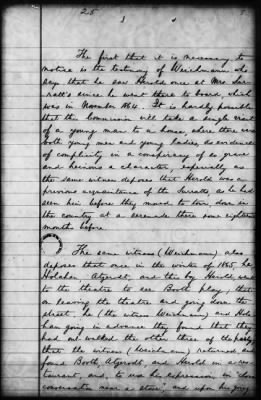 25
3
The first that it is necessary to
notice is the testimony of Weichmann, who
says that he saw Herold once at Mrs. Sur-
ratt's since he went there to board, which
was in November 1864. It is hardly possible
that the Commission will take a single visit
of a young man to a house, where there were
both young men and young ladies, as evidence
of complicity in a conspiracy of so grave
and heinous a character, especially as
the same witness deposes that Herold was a
previous acquaintance of the Surratts, as he had
seen him before they moved to town, down in
the country at a serenade there some eighteen
months before.
The same witness (Weichmann) also
deposes that once in the winter of 1865, he,
Holahan, Atzerodt, and this boy Herold went
to the theatre to see Booth play; that
on leaving the theatre and going down the
street, he (the witness Weichmann) and Hola-
han going in advance they found that they
had out-walked the other three of the party;
that the witness (Weichmann) returned and
found Booth, Atzerodt, and Herold in a res-
taurant, and, to use his expression, in "close
conversation near a stove," and upon his going